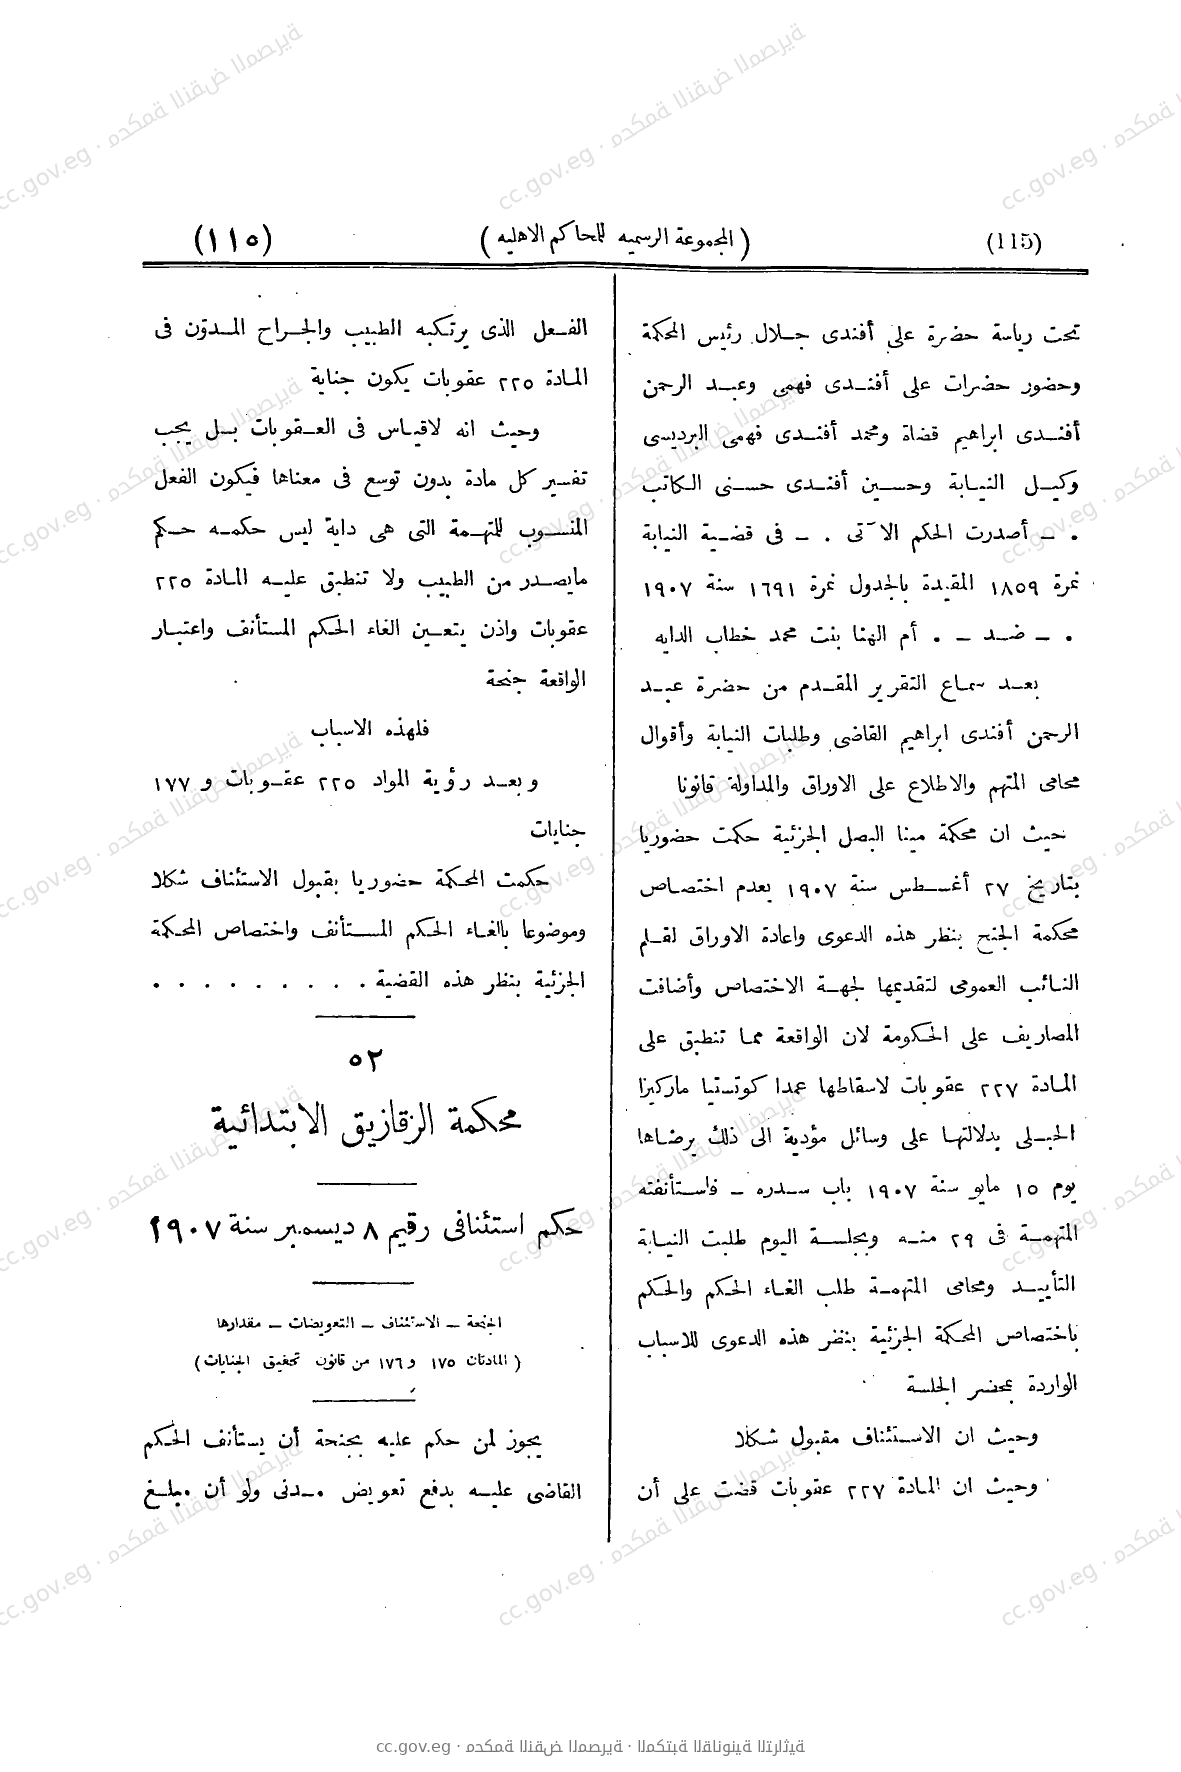 (115) (المجموعة الرسميه للمحاكم الاهليه) (١١٥)
تحت رياسة حضرة على أفندى جلال رئيس المحكمة
وحضور حضرات على أفندى فهمى وعبد الرحمن
أفندى ابراهيم قضاة ومحمد أفندى فهمى البرديسى
وكيل النيابة وحسين أفندى حسنى الكاتب
. ــ أصدرت الحكم الآتى . ــ فى قضية النيابة
نمرة ١٨٥٩ المقيدة بالجدول نمرة ١٦٩١ سنة ١٩٠٧
. ــ ضد ــ . أم الهنا بنت محمد خطاب الدايه
بعد سماع التقرير المقدم من حضرة عبد
الرحمن أفندى ابراهيم القاضى وطلبات النيابة وأقوال
محامى المتهم والاطلاع على الاوراق والمداولة قانونا
حيث ان محكمة مينا البصل الجزئية حكمت حضوريا
بتاريخ ٢٧ أغسطس سنة ١٩٠٧ بعدم اختصاص
محكمة الجنح بنظر هذه الدعوى واعادة الاوراق لقلم
النائب العمومى لتقديمها لجهة الاختصاص وأضافت
المصاريف على الحكومة لان الواقعة مما تنطبق على
المادة ٢٢٧ عقوبات لاسقاطها عمدا كوتستيا ماركيزا
الحبلى بدلالتها على وسائل مؤدية الى ذلك برضاها
يوم ١٥ مايو سنة ١٩٠٧ باب سدره ــ فاستأنفته
المتهمة فى ٢٩ منه وبجلسة اليوم طلبت النيابة
التأييد ومحامى المتهمة طلب الغاء الحكم والحكم
باختصاص المحكمة الجزئية بنظر هذه الدعوى للاسباب
الواردة بمحضر الجلسة
وحيث ان الاستئناف مقبول شكلا
وحيث ان المادة ٢٢٧ عقوبات قضت على أن
الفعل الذى يرتكبه الطبيب والجراح المدوّن فى
المادة ٢٢٥ عقوبات يكون جناية
وحيث انه لاقياس فى العقوبات بل يجب
تفسير كل مادة بدون توسع فى معناها فيكون الفعل
المنسوب للمتهمة التى هى داية ليس حكمه حكم
مايصدر من الطبيب ولا تنطبق عليه المادة ٢٢٥
عقوبات واذن يتعين الغاء الحكم المستأنف واعتبار
الواقعة جنحة
فلهذه الاسباب
وبعد رؤية المواد ٢٢٥ عقوبات و ١٧٧
جنايات
حكمت المحكمة حضوريا بقبول الاستئناف شكلا
وموضوعا بالغاء الحكم المستأنف واختصاص المحكمة
الجزئية بنظر هذه القضية . . . . . . . . .
٥٢
محكمة الزقازيق الابتدائية
حكم استئنافى رقيم ٨ ديسمبر سنة ١٩٠٧
الجنحة ــ الاستئناف ــ التعويضات ــ مقدارها
(المادتان ١٧٥ و١٧٦ من قانون تحقيق الجنايات)
يجوز لمن حكم عليه بجنحة أن يستأنف الحكم
القاضى عليه بدفع تعويض مدنى ولو أن مبلغ
cc.gov.eg · محكمة النقض المصرية · المكتبة القانونية التراثية